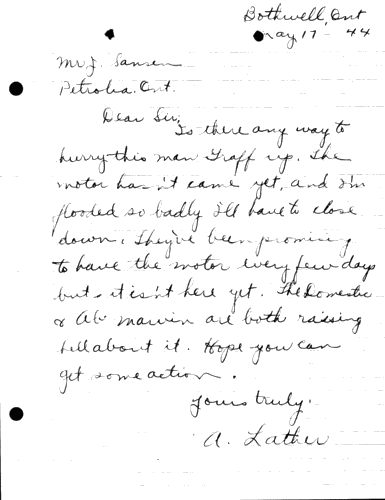 Bothwell, Ont
May 17 - 44
Mr. J. Sansen
Petrolea. Ont.
Dear Sir;
Is there any way to
hurry this man Graff up. The
motor hasn't came yet, and I'm
flooded so badly I'll have to close
down. They've been promising
to have the motor every few days
but - it isn't here yet. The Domestic
& Ab Marvin are both raising
hell about it. Hope you can
get some action.
Yours truly.
A. Lather